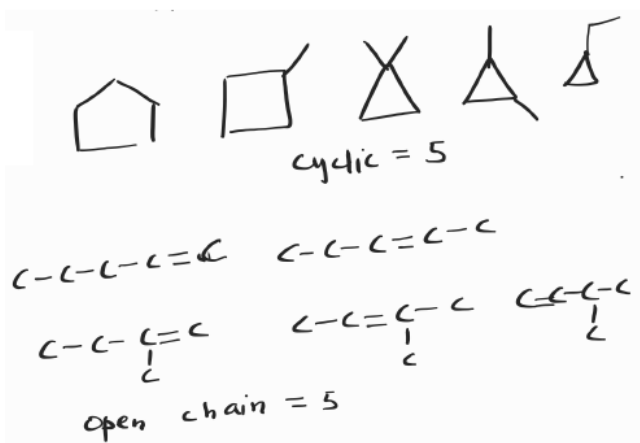 cyclic = 5
C-C-C-C=C C-C-C=C-C
C-C-C=C C-C=C-C C=C-C-C
C C C
open chain = 5